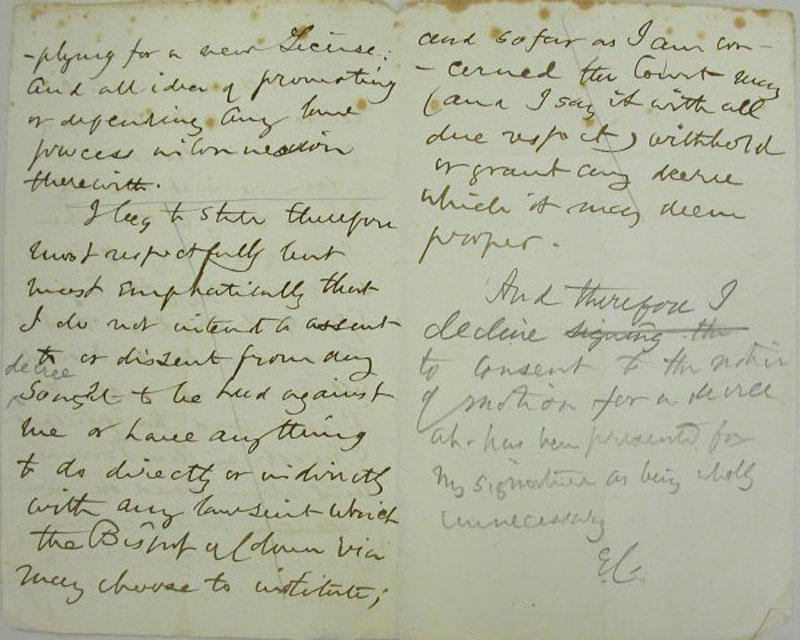 -plying for a new License:
And all idea of promoting
or defending any law
process in connexion
therewith.
I beg to state therefore
most respectfully but
most emphatically that
I do not intend to assent
to or dissent from any
decree
sought to be had against
me or have anything
to do directly or indirectly
with any lawsuit which
the Bishop of
may choose to institute;
and so far as I am con-
-cerned the Court may
(and I say it with all
due respect) withhold
or grant any decree
which it may deem
proper.
And therefore I
decline signing the
to consent to the notice
of motion for a decree
wh. has been presented for
my signature as being wholly
unnecessary